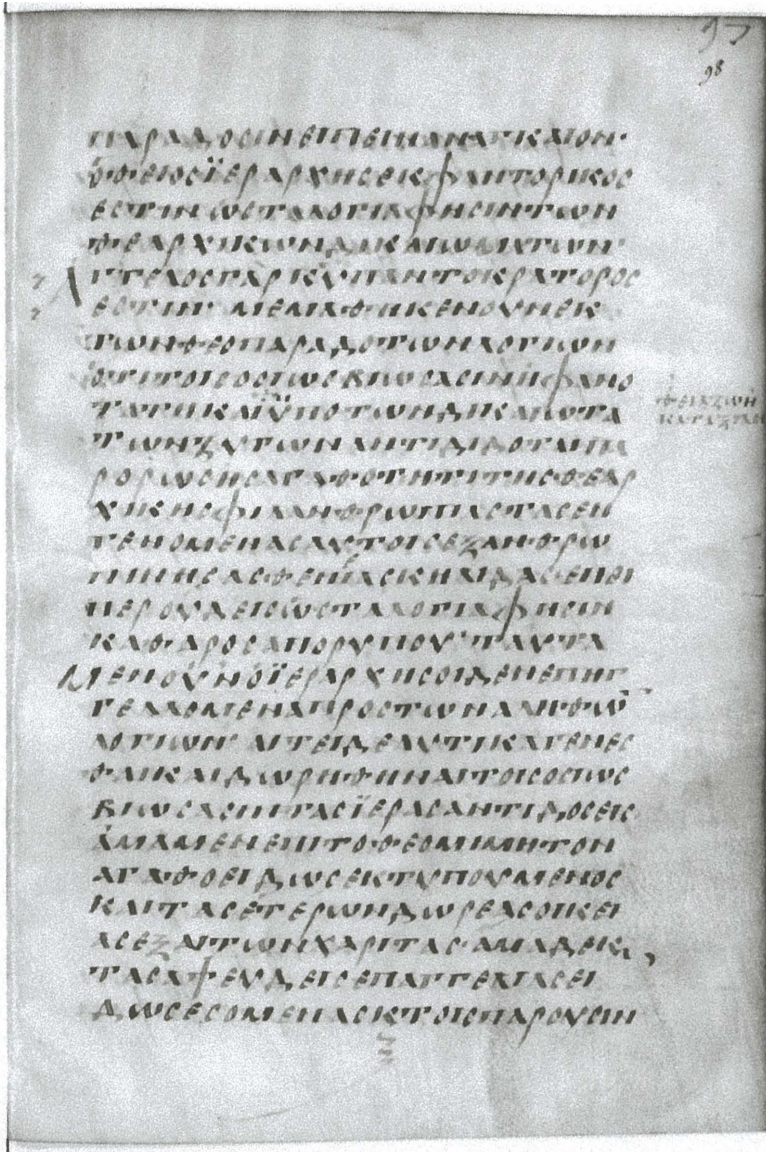 97
98
ΠΑΡΑΔΟΣΙΝΕΙΠΕΙΝΑΝΑΓΚΑΙΟΝ·
ὉΘΕΙΟΣΪΕΡΑΡΧΗΣΕΚΦΑΝΤΟΡΙΚΟΣ
ΕΣΤΙΝΩΣΤΑΛΟΓΙΑΦΗΣΙΝΤΩΝ
ΘΕΑΡΧΙΚΩΝΔΙΚΑΙΩΜΑΤΩΝ·
ΑΓΓΕΛΟΣΓΑΡΚΥΠΑΝΤΟΚΡΑΤΟΡΟΣ
ΕΣΤΙΝ· ΜΕΜΑΘΗΚΕΝΟΥΝΕΚ
ΤΩΝΘΕΟΠΑΡΑΔΟΤΩΝΛΟΓΙΩΝ
ΟΤΙΤΟΙΣΟΣΙΩΣΒΙΩΣΑΣΙΝΗΦΑΝΟ
ΤΑΤΗΚΑΙΫΠΟΤΩΝΔΙΚΑΙΟΤΑ
ΤΩΝΖΥΓΩΝΑΝΤΙΔΙΔΟΤΑΙΠΑ
ΡΟΡΩΣΗΣΑΓΑΘΟΤΗΤΙΤΗΣΘΕΑΡ
ΧΙΚΗΣΦΙΛΑΝΘΡΩΠΙΑΣΤΑΣΕΝ
ΓΕΝΟΜΕΝΑΣΑΥΤΟΙΣΕΞΑΝΘΡΩ
ΠΙΝΗΣΑΣΘΕΝΕΙΑΣΚΗΛΙΔΑΣ·ΕΠΕΙ
ΠΕΡΟΥΔΕΙΣΩΣΤΑΛΟΓΙΑΦΗΣΙΝ
ΚΑΘΑΡΟΣΑΠΟΡΥΠΟΥ· ΤΑΥΤΑ
ΜΕΝΟΥΝὉΪΕΡΑΡΧΗΣΟΙΔΕΝΕΠΗΓ
ΓΕΛΜΕΝΑΠΡΟΣΤΩΝΑΛΗΘΩ
ΛΟΓΙΩΝ· ΑΙΤΕΙΔΕΑΥΤΙΚΑΓΕΝΕΣ
ΘΑΙΚΑΙΔΩΡΗΘΗΝΑΙΤΟΙΣΟΣΙΩΣ
ΒΙΩΣΑΣΙΝΤΑΣΪΕΡΑΣΑΝΤΙΔΟΣΕΙΣ
ἉΜΑΜΕΝΕΠΙΤΟΘΕΟΜΙΜΗΤΟΝ
ΑΓΑΘΟΕΙΔΩΣΕΚΤΥΠΟΥΜΕΝΟΣ
ΚΑΙΤΑΣΕΤΕΡΩΝΔΩΡΕΑΣΟΙΚΕΙ
ΑΣΕΞΑΙΤΩΝΧΑΡΙΤΑΣ·ΑΜΑΔΕΚ
ΤΑΣΑΨΕΥΔΕΙΣΕΠΑΓΓΕΛΙΑΣΕΙ
ΔΩΣΕΣΟΜΕΝΑΣΚΤΟΙΣΠΑΡΟΥΣΙΝ